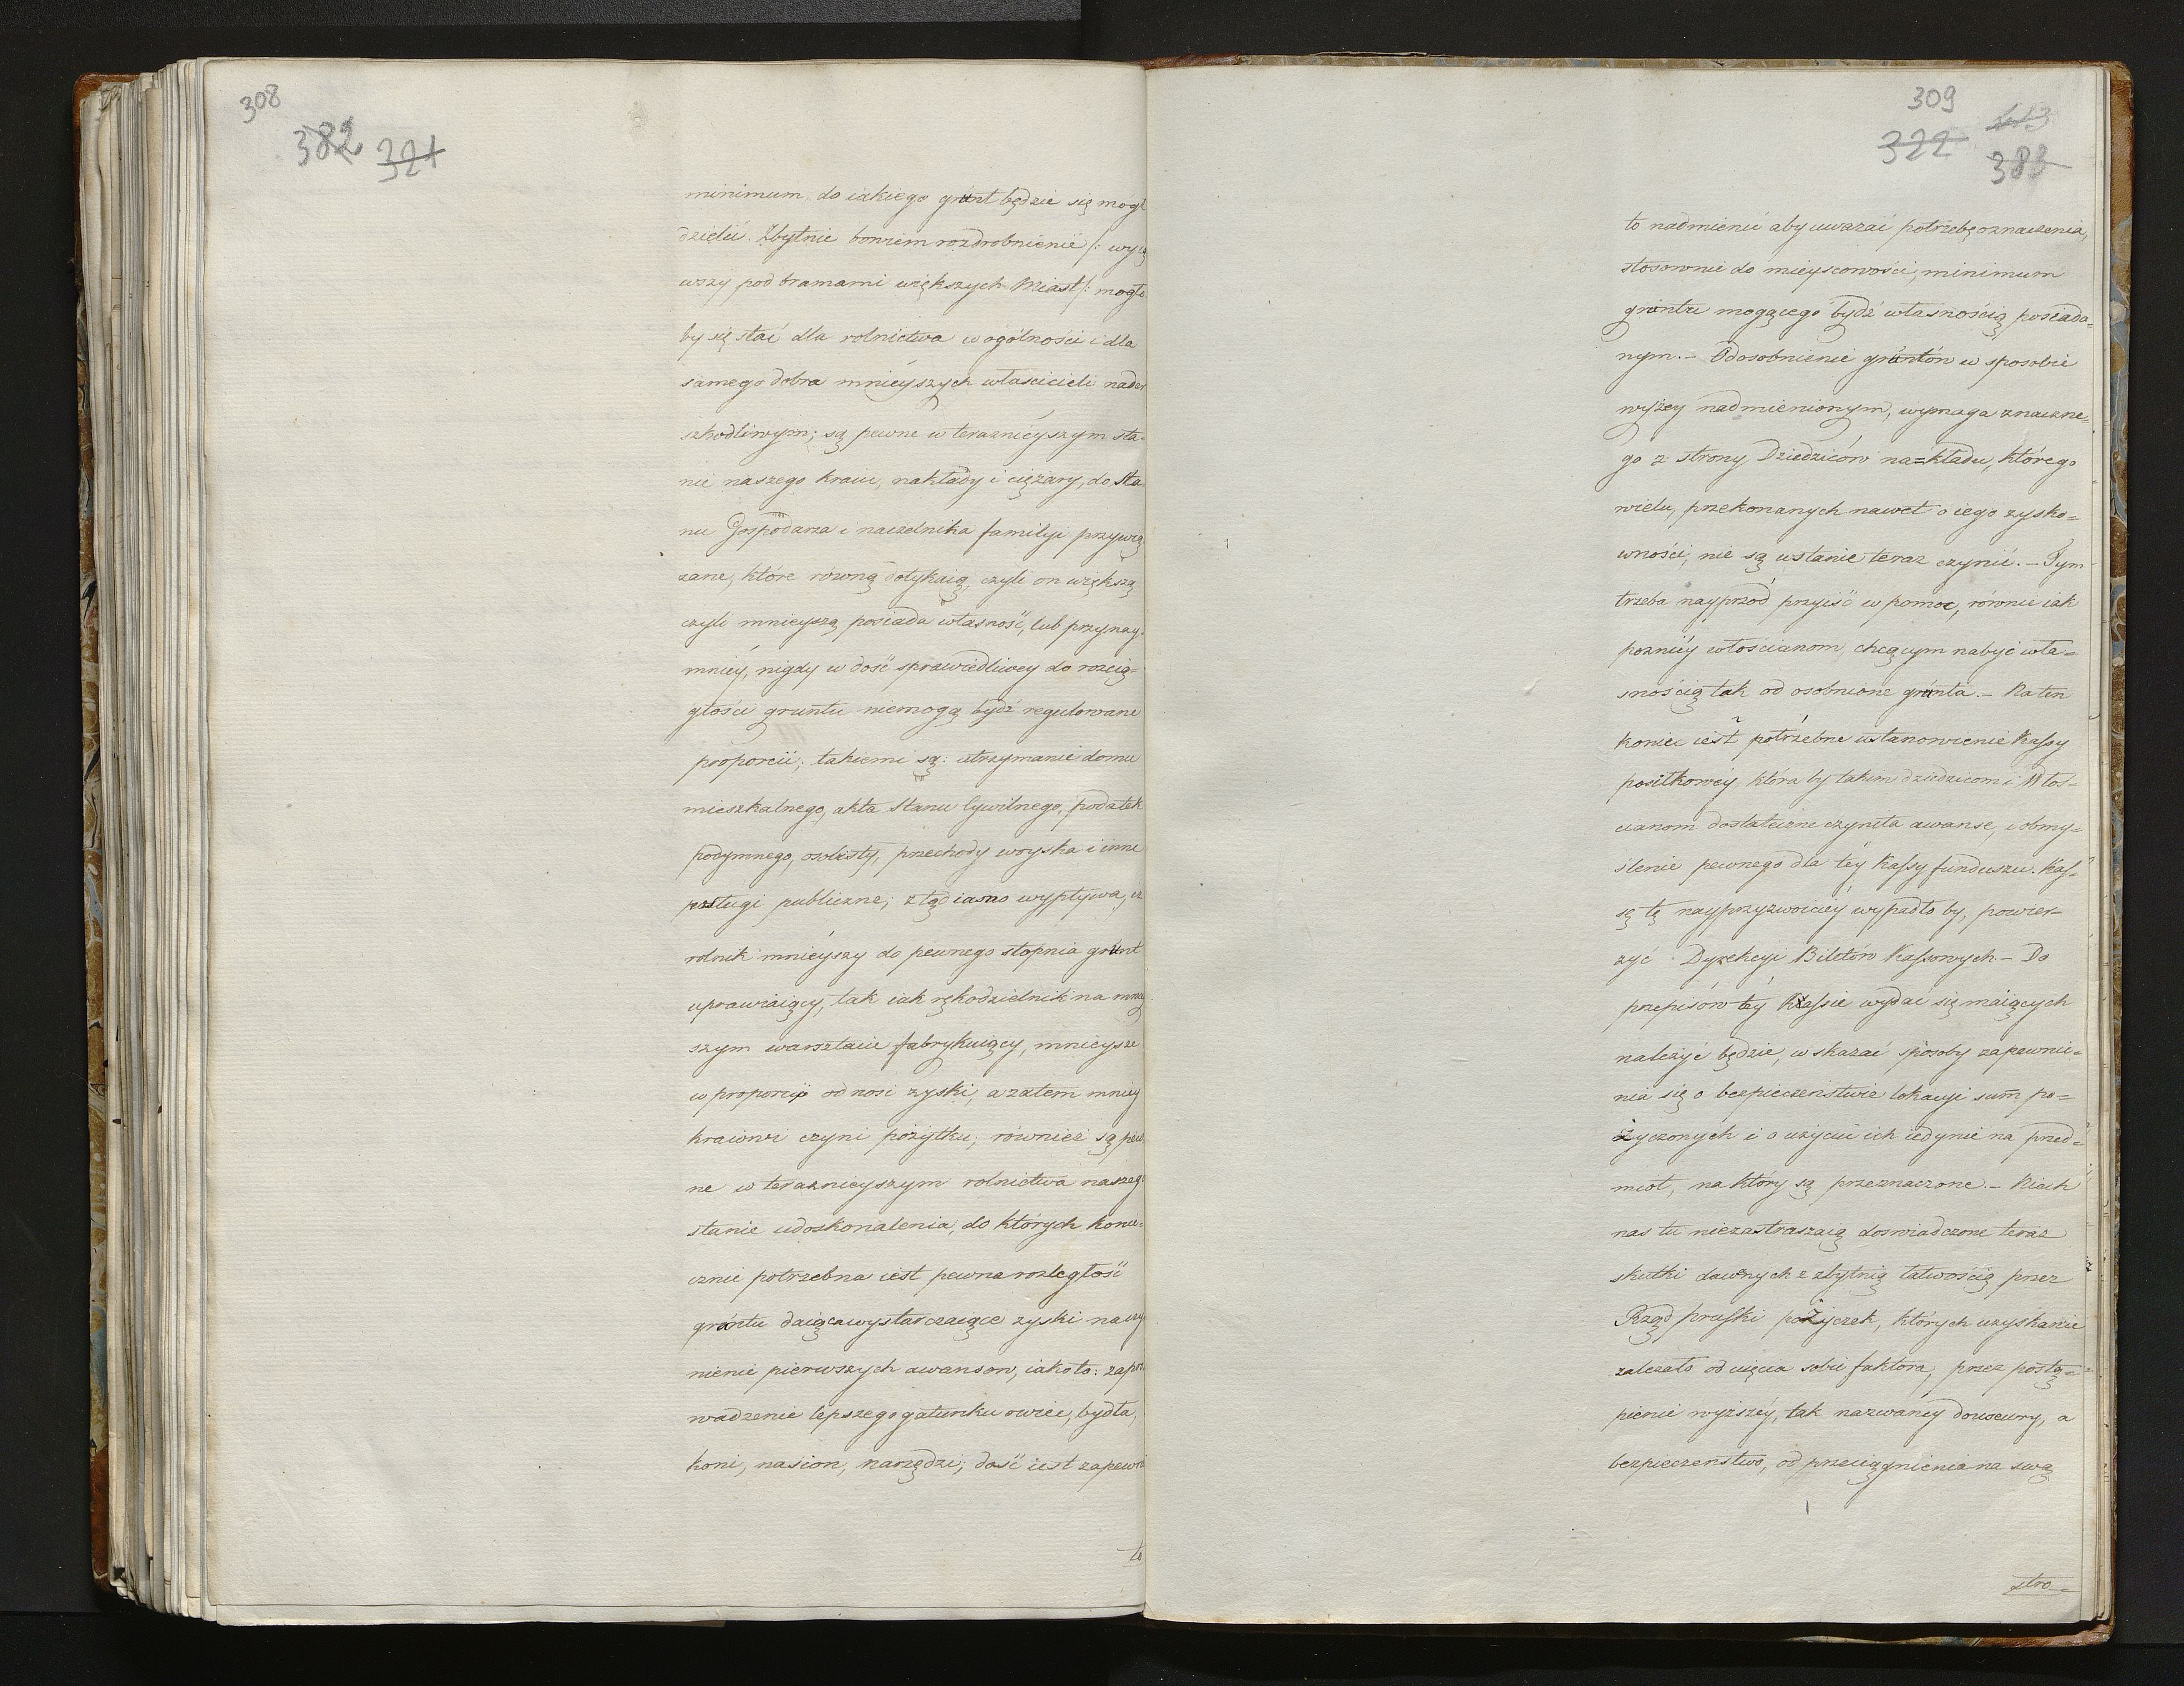 308
382 321
minimum do iakiego grunt będzie się mogł
dzielić. Zbytnie bowiem rozdrobnienie /: wyią
wszy pod bramami większych Miast /: mogło
by się stać dla rolnictwa w ogólności i dla
samego dobra mnieyszych własicieli nader
szkodliwym; są pewne w teraznieyszym sta-
nie naszego kraiu, nakłady i ciężary, do sta
nu Gospodarza i naczelnika familyi przywią
zane, które równą dotykaią, czyli on większą
czyli mnieyszą posiada własność, lub przynay-
mniéy, nigdy w dość sprawiedliwey do rozcią-
głości gruntu niemogą bydź regulowane
proporcii; takiemi są: utrzymanie domu
mieszkalnego, akta Stanu Cywilnego, podatek
podymnego, osobisty, przechody woyska i inne
posługi publiczne; ztąd iasno wypływa, iż
rolnik mnieyszy do pewnego stopnia grunt
uprawiaiący, tak iak rękodzielnik na mniey
szym warsztacie fabrykuiący, mnieysze
w proporcii odnosi zyski, a zatem mniey
kraiowi czyni pożytku; również są pew
ne w teraznieyszym rolnictwa naszego
stanie udoskonalenia, do których konie-
cznie potrzebna iest pewna rozległość
gruntu daiąca wystarczaiące zyski na czy
nienie pierwszych awansow, iako to: zapro
wadzenie lepszego gatunku owiec, bydła,
koni, nasion, narzędzi; dość iest zapewne
to
309
322 413
383
to nadmienić aby uwazać potrzebę oznaczenia,
stosownie do mieyscowości, minimum
gruntu mogącego bydź własnością posiada=
nym. – Odosobnienie gruntów w sposobie
wyżey nadmienionym, wymaga znaczne=
go z strony Dziedziców na=kładu, którego
wielu, przekonanych nawet o iego zysko=
wności, nie są wstanie teraz czynić. – Tym
trzeba nayprzód przyiść w pomoc, równie iak
pozniéy włościanom, chcącym nabyć wła=
snością tak od osobnione grunta. – Na ten
koniec iest potrzebne ustanowienie Kassy
posiłkowéy, która by takim dziedzicom i Włoś=
cianom dostateczne czyniła awanse, i obmy=
ślenie pewnego dla téy Kassy funduszu. Kas=
sę tę nayprzyzwoiciéy wypadło by, powier=
zyć Dyrekcyi Biletów Kassowych. – Do
przepisów téy Kassie wydać się maiących
należyć będzie, wskazać sposoby zapewnie=
nia się o bezpieczeństwie lokacyi summ po=
życzonych i o użyciu ich iedynie na przed=
miot, na który są przeznaczone. – Niech
nas tu niezastraszaią doswiadczone teraz
skutki dawnych z zbytnią łatwością przez
Rząd pruski pożyczek, których uzyskanie
zależało od uięcia sobie faktora, przez postą=
pienie wyższéy, tak nazwanéy douceury, a
bezpieczenstwo, od przeciągnienia na swą
stro=